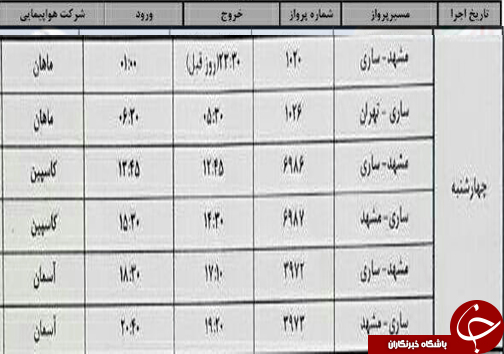 تاریخ اجرا مسیرپرواز شماره پرواز خروج ورود شرکت هواپیمایی
مشهد-ساری ۱۰۲۰ ۲۳:۳۰(روز قبل) ۰۱:۰۰ ماهان
ساری-تهران ۱۰۲۶ ۰۵:۳۰ ۰۶:۲۰ ماهان
مشهد-ساری ۶۹۸۶ ۱۲:۴۵ ۱۳:۴۵ کاسپین
چهارشنبه
ساری-مشهد ۶۹۸۷ ۱۴:۳۰ ۱۵:۳۰ کاسپین
مشهد-ساری ۳۹۷۲ ۱۷:۱۰ ۱۸:۳۰ آسمان
ساری-مشهد ۳۹۷۳ ۱۹:۲۰ ۲۰:۴۰ آسمان
باشگاه خبرنگاران